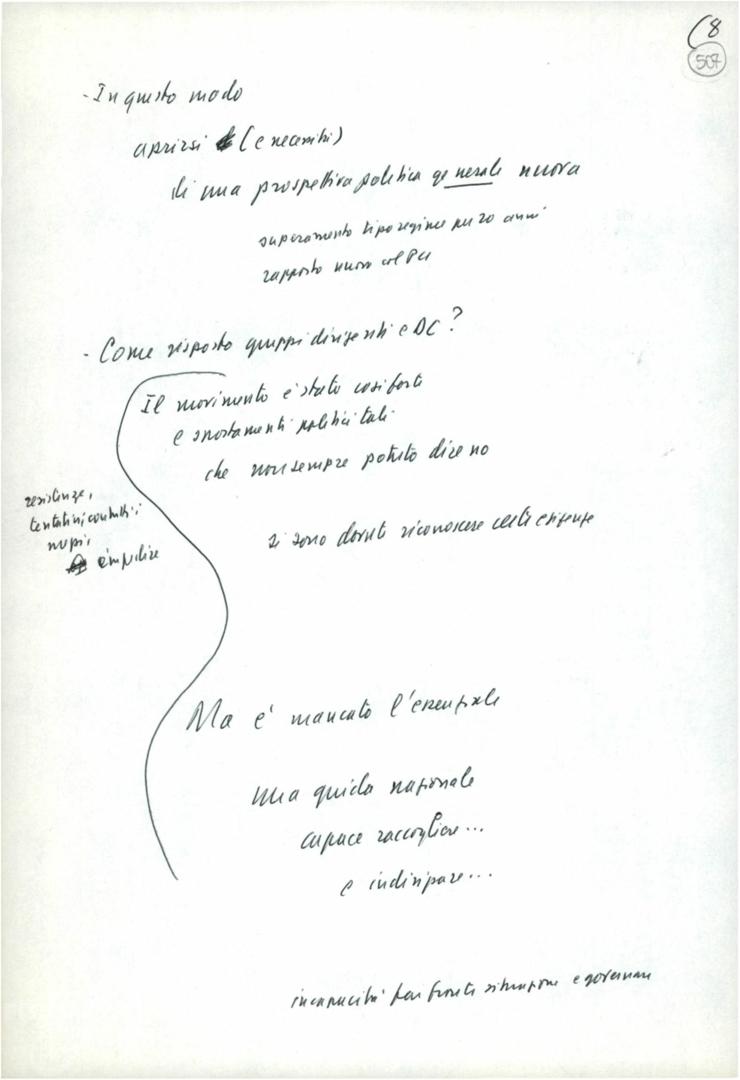 (8
507
- In questo modo
aprirsi (e necessità)
di una prospettiva politica generale nuova
superamento tipo regime per 20 anni
rapporto nuovo col PCI
- Come risposto gruppi dirigenti e DC?
Il movimento è stato così forte
e spostamenti politici tali
che non sempre potuto dire no
resistenze,
tentativi
si sono dovute riconoscere certe esigenze
Ma è mancato l'essenziale
una guida nazionale
capace raccogliere...
e indirizzare...
incapacità far fronte situazione e governare